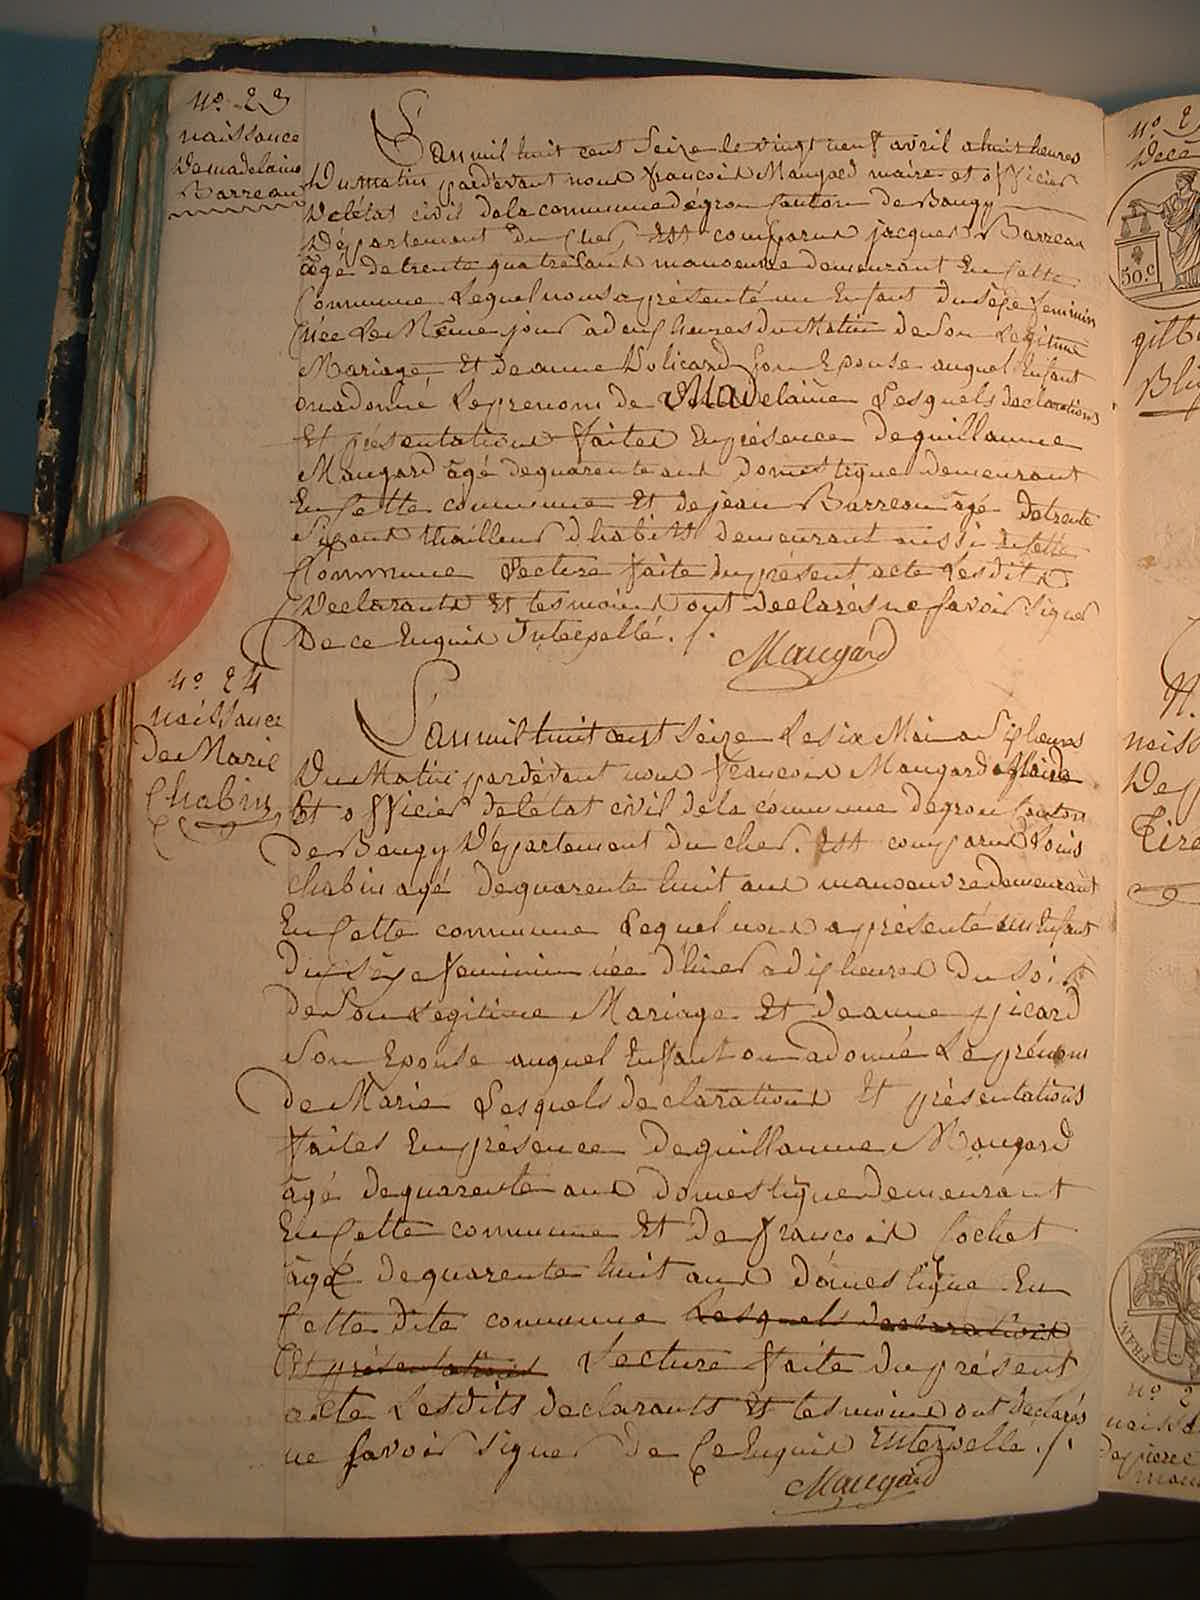 n.º 23
naissance
de madelaine
Barreau
Lan mil huit cent Seize le vingt neuf avril a huit heures
Du Matin pardevant nous françois Maugard maire et officier
De létat civil de la commune dégron Canton de Baugy
Département du Cher, Est comparu jacques Barreau
âgé de trente quatre ans manoeuvre demeurant En Cette
Commune Lequel nous a présenté un Enfant du Sexe feminin
née Le Même jour a deux heures du Matin de Son Légitime
Mariage Et de anne Son Epouse auquel Enfant
on a donné Le prenom de Madelaine Lesquels declarations
Et présentations faites En présence de guillaume
Maugard âgé de quarente ans domestique demeurant
En Cette commune Et de jean Barreau âgé de trente
Six ans thailleur d habits demeurant aussi de Cette
Commune Lecture faite du présent acte Lesdits
Declarants Et tesmoins ont declarés ne Savoir Signer
De ce Enquis Interpellé ./.
Maugard
n.º 24
naissance
de Marie
Chabin
Lan mil huit cent Seize Le six Mai a Six heures
Du Matin pardevant nous françois Maugard Maire
Et officier de létat civil de la commune dégron Canton
de Baugy Département du cher. Est comparu Louis
Chabin agé de quarente huit ans manoeuvre demeurant
En Cette commune Lequel nous a présenté un Enfant
du Séxe feminin née d'hier a dix heures du Soir
de Son Legitime Mariage Et de anne picard
Son Epouse auquel Enfant on a donné Le prénom
de Marie Lesquels declarations Et présentations
faites En présence de guillaume Maugard
âgé de quarente ans domestique demeurant
En Cette commune Et de françois Cochet
âgé de quarente huit ans domestique En
Cette dite commune Lesquels declarations
Et présentations Lecture faite du présent
acte Lesdits declarants Et tesmoins ont declarés
ne Savoir Signer de Ce Enquis Interpellé ./.
Maugard
n.º 2
50.c
n.º
FRAN